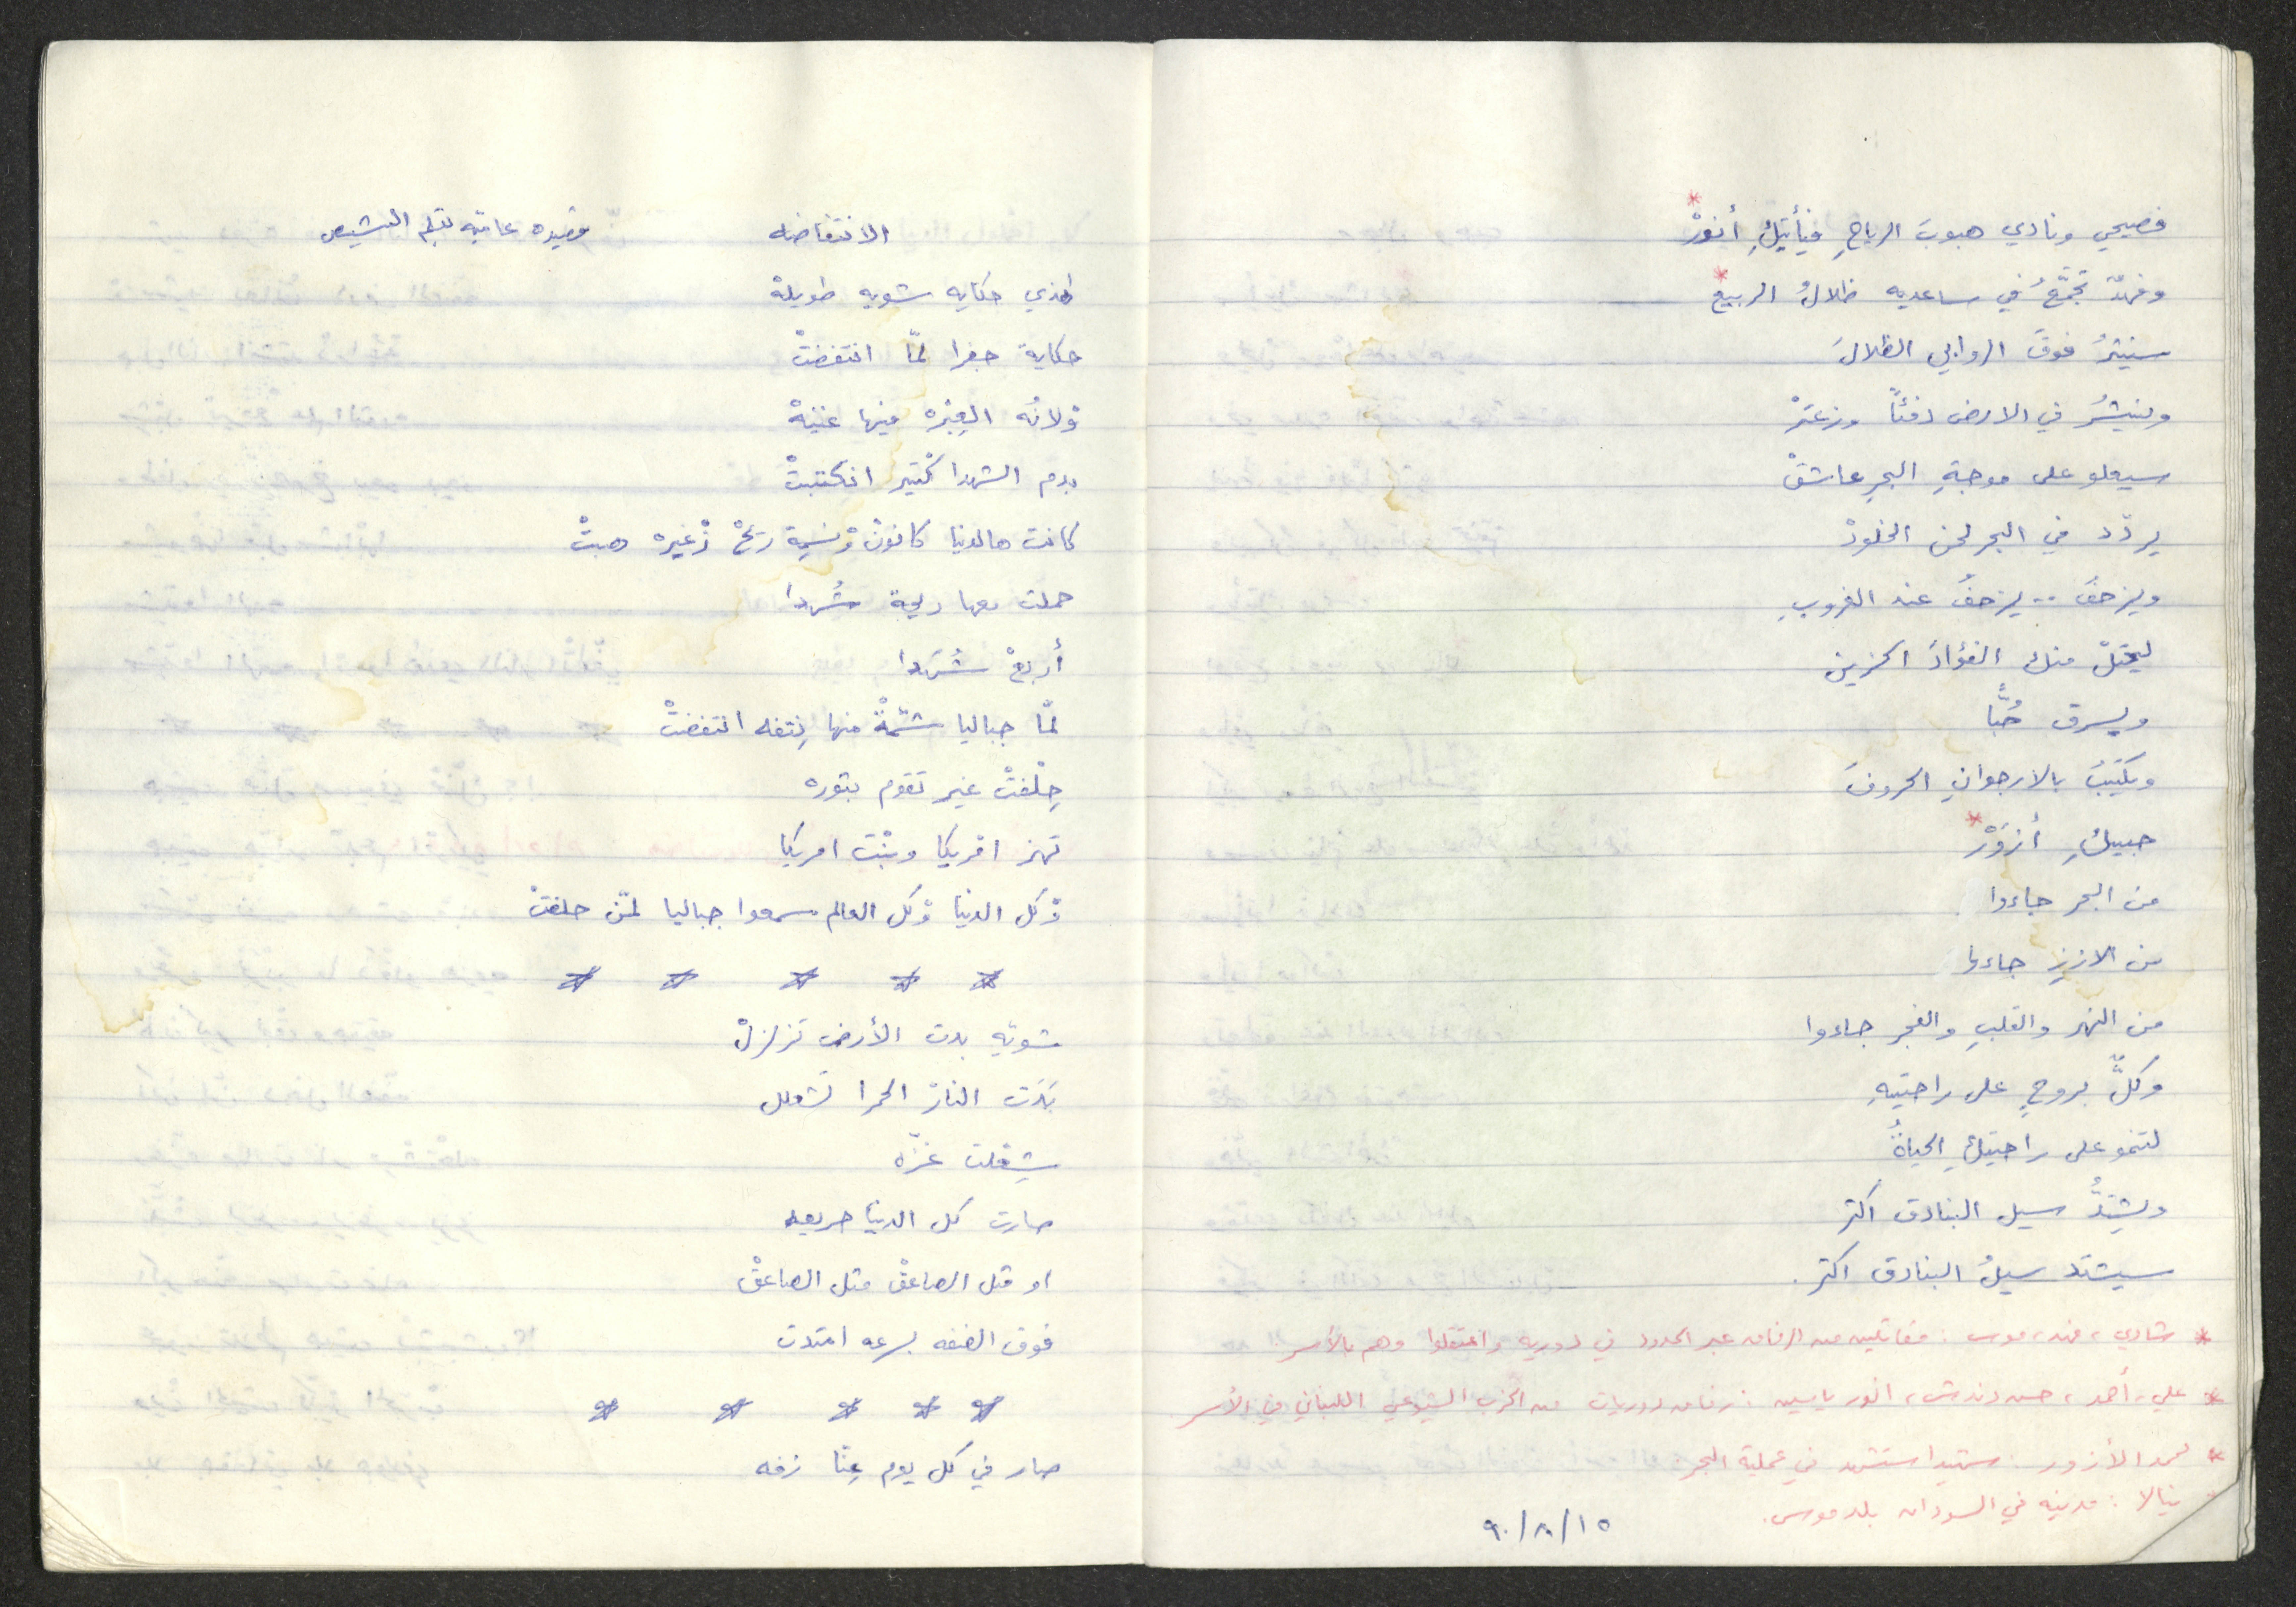 فصيحي ونادي هبوبَ الرياحِ فيأتيكِ أنورْ*
وفهدٌ تجمَّعُ في ساعديه ظلالُ الربيعْ*
سينثرُ فوقَ الروابي الظلالَ
وينشرُ في الارض دفئاً وزعترْ
سيعلو على موجةِ البحرِ عاشقْ
يردّد في البحر لحن الخلودْ
ويزحفُ .. يزحفُ عند الغروبِ
ليحتلّ منك الفؤادَ الحزين
ويسرق حُبًّا
ويكتبَ بالارجوانِ الحروفَ
حبيبكِ أزوَرْ*
من البحر جاءوا
من الارزِ جاءوا
من النهر والقلبِ والفجر جاءوا
وكلٌّ بروحٍ على راحتيهِ
لتنمو على راحتيكِ الحياةُ
ويشتدُّ سيل البنادق اكثر
سيشتد سيلُ البنادق اكثر.
* شادي، فهد، موسى : مقاتلين من الرفاق عبر الحدود في دورية واعتقلوا وهم بالأسر.
* علي، أحمد، حسن دندش، انور ياسين : رفاق دوريات من الحزب الشيوعي اللبناني في الأسر
* محمد الأزور : شهيد استشهد في عملية البحر
* نيالا : مدينه في السودان بلد موسى.
٩٠/٨/١٥
الانتفاضه قصيده عاميّه بقلم النشيص
هذي حكايه شويه طويلة
حكاية جفرا لمّا انتفضتْ
وْلانّه العِبْره فيها غنيّهْ
بدم الشهدا كْتير انكتبتْ
كانت هالدنيا كانونْ وْنسمة ريحْ زْغيره هبتْ
حملت معها ريحة شُهدا
أربعْ شُهَدا
لمّا جباليا شمّةْ منها نِتفه انتفضتْ
حِلْفتْ غير تقوم بثوره
تهز افريكا وبنْت امريكا
وْكل الدنيا وْكل العالم سمعوا جباليا لمّن حلفتْ
* * * * *
شويّه بدت الأرض تزلزلْ
بَدَت النارْ الحمرا تشعلل
شِعْلت غزّه
صارت كل الدنيا حريقه
او مثل الصاعقْ مثل الصاعقْ
فوق الضفه بسرعه امتدت
* * * * *
صار في كل يوم عِنّا زفه